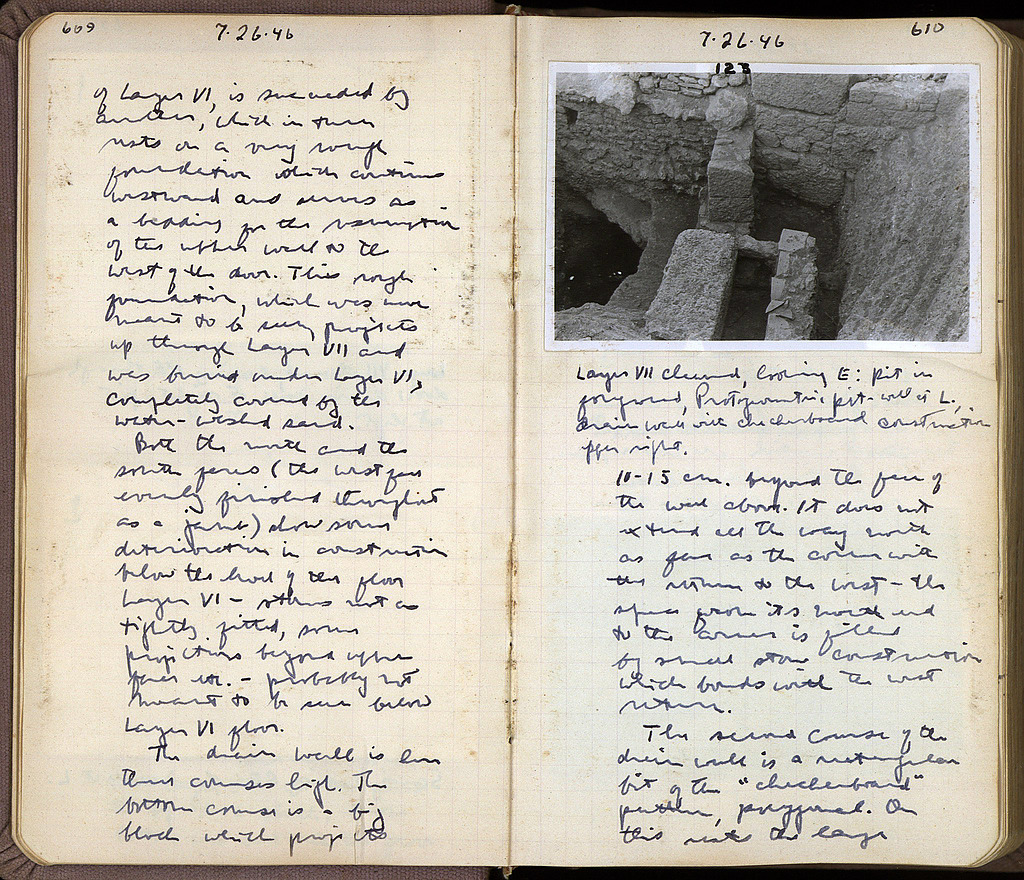 609
7·26·46
of Layer VI, is succeeded by
another, which in turn
rests on a very rough
foundation which continues
westward and serves as
a bedding for the resumption
of the upper wall to the
west of the door. This rough
foundation, which was never
meant to be seen, projects
up through Layer VII and
was buried under Layer VI,
completely covered by the
water-washed sand.
Both the north and the
south faces (the west face
evenly finished throughout
as a jamb) show some
deterioration in construction
below the level of the floor
Layer VI – stones not as
tightly fitted, some
projections beyond upper
faces etc. – probably not
meant to be seen below
Layer VI floor.
The drain wall is here
three courses high. The
bottom course is a big
block which projects
7·26·46
610
123
Layer VII cleaned, looking E: pit in
foreground, Protogeometric pit-well at L.,
drain wall with checkerboard construction
upper right.
10-15 cm. beyond the face of
the wall above. It does not
extend all the way north
as far as the corner with
the return to the west – the
space from its north end
to the corner is filled
by small stone construction
which bonds with the west
return.
The second course of the
drain wall is a rectangular
bit of the "checkerboard"
pattern, polygonal. On
this rests the large